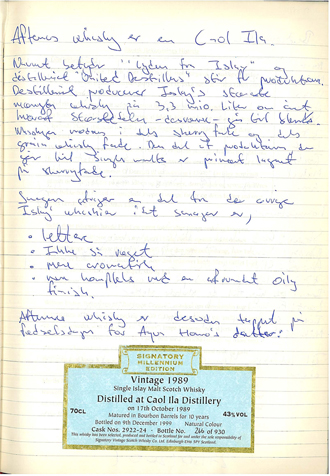 Aftenens whisky er en Caol Ila.
Navnet betyder "Lyden fra Islay" og
destilleriet United Destillers står for produktionen.
Destilleriet producerer Islay's største
mængde whisky på 3,3 mio. liter om året
hvoraf størstedelen - desværre - går til blends.
Whiskyen modnes i dels sherry fade og dels
grain whisky fade. Den del af produktionen, der
går til single malts er primært lagret
på sherryfade.
Smagen afviger en del fra de øvrige
Islay whiskier idet smagen er,
• lettere
• Ikke så røget
• mere aromatisk
• mere kompleks med en afrundet oily
finish.
Aftenens whisky er desuden tappet på
fødselsdagen for datter!
SIGNATORY
MILLENNIUM
EDITION
Vintage 1989
Single Islay Malt Scotch Whisky
Distilled at Caol Ila Distillery
on 17th October 1989
70CL
Matured in Bourbon Barrels for 10 years
43%VOL
Bottled on 9th December 1999 Natural Colour
Cask Nos. 2922-24 - Bottle No. 216 of 930
This whisky has been selected, produced and bottled in Scotland for and under the sole responsibility of
Signatory Vintage Scotch Whisky Co. Ltd. Edinburgh EH6 5PY Scotland.